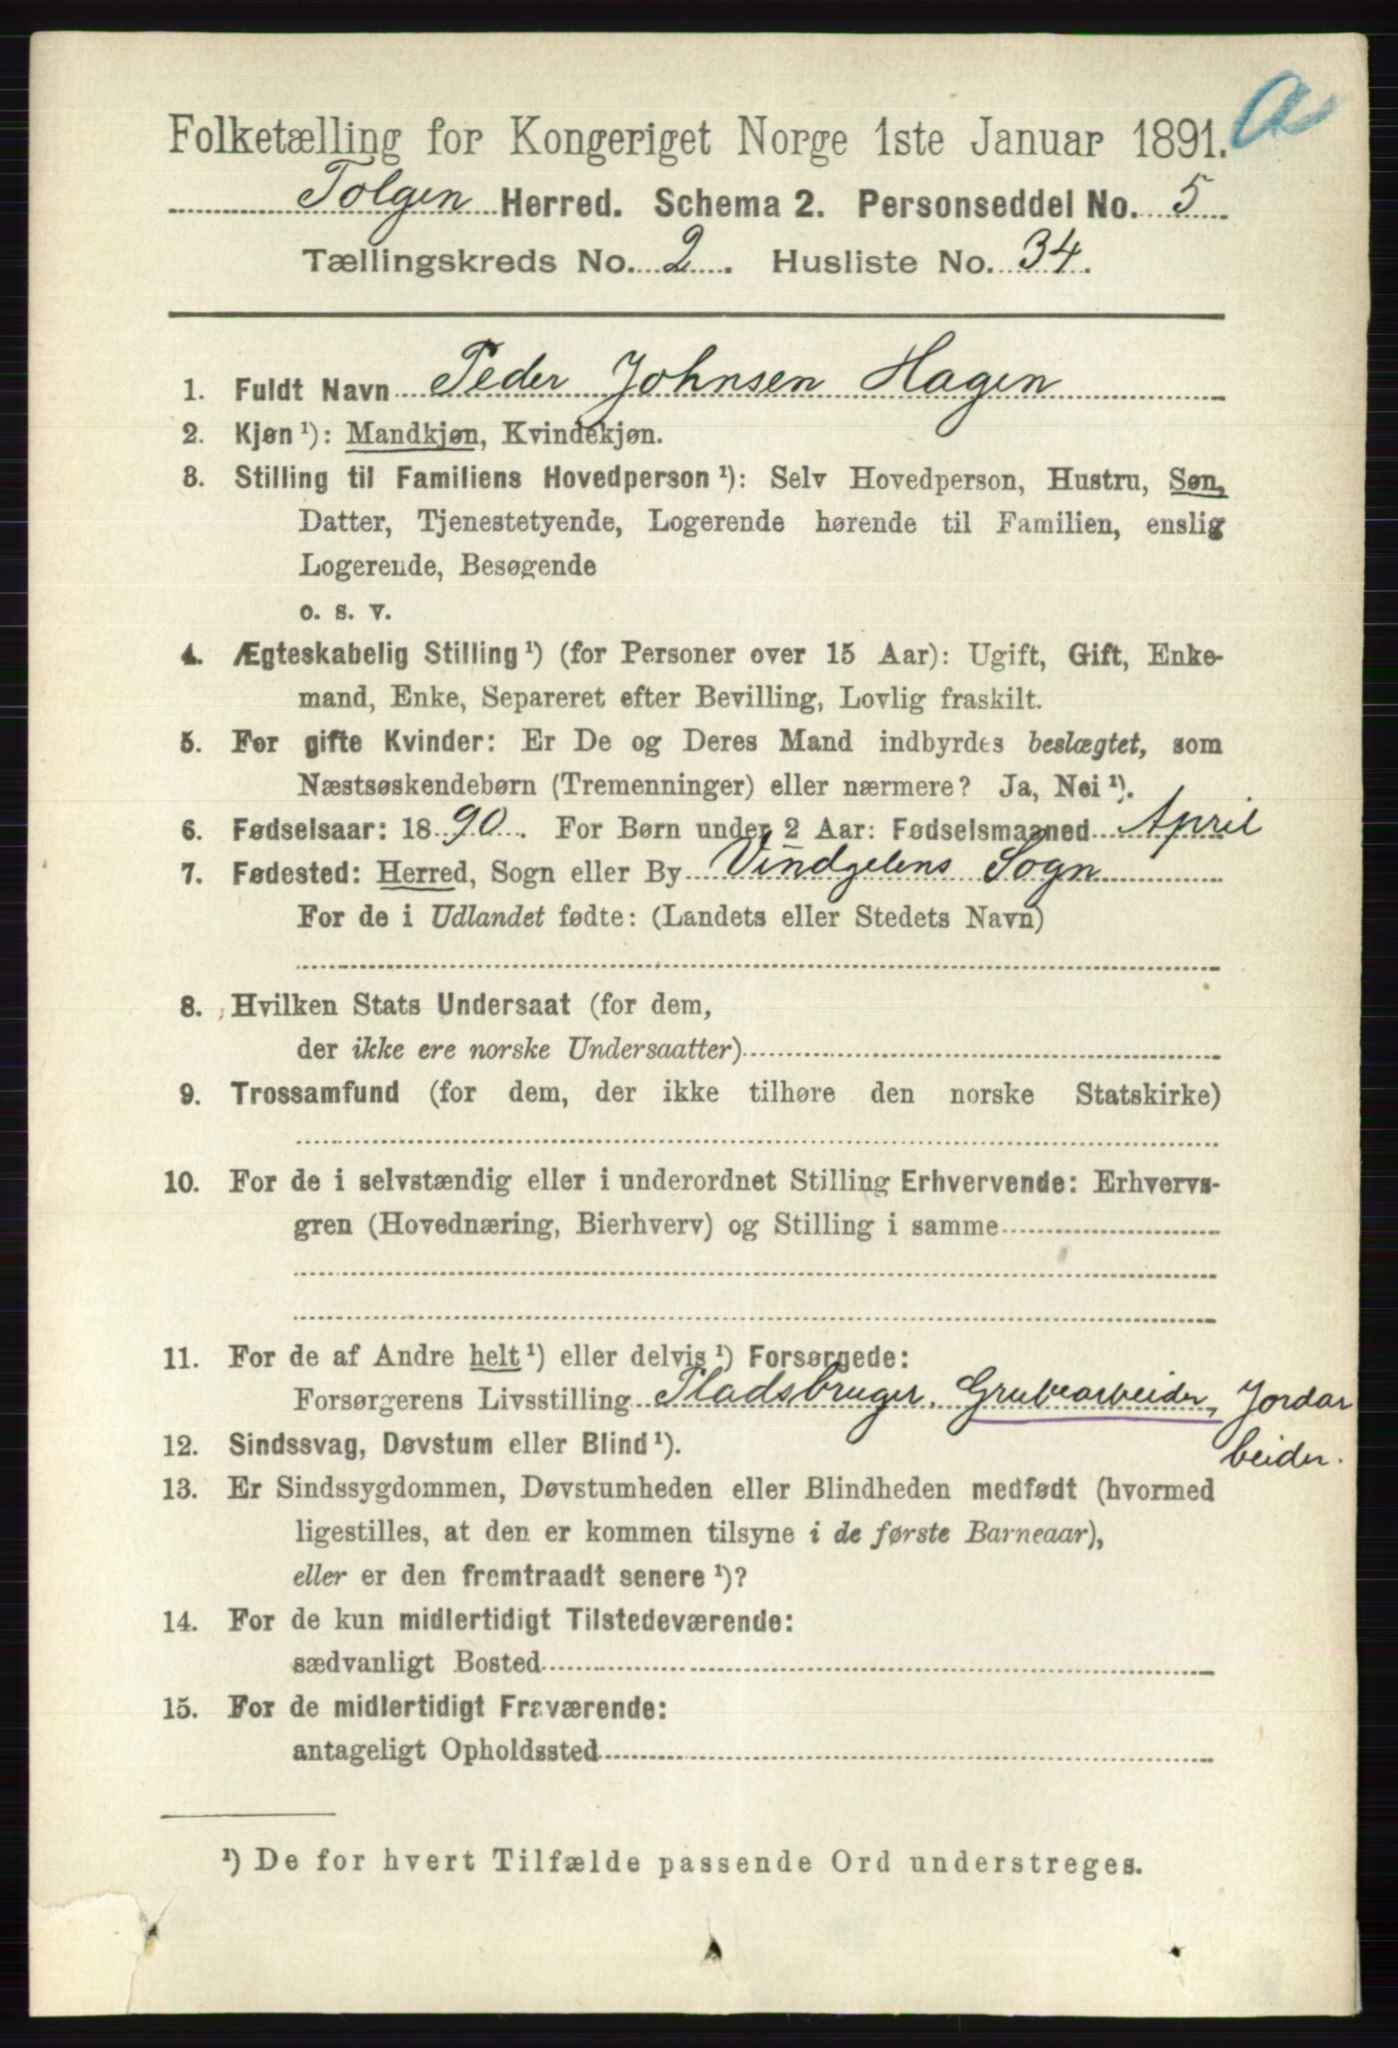 a
Folketælling for Kongeriget Norge 1ste Januar 1891.
Tolgen Herred. Schema 2. Personseddel No. 5
Tællingskreds No. 2. Husliste No. 34.
1. Fuldt Navn Peder Johnsen Hagen
2. Kjøn ¹): Mandkjøn, Kvindekjøn.
3. Stilling til Familiens Hovedperson ¹): Selv Hovedperson, Hustru, Søn,
Datter, Tjenestetyende, Logerende hørende til Familien, enslig
Logerende, Besøgende
o. s. v.
4. Ægteskabelig Stilling ¹) (for Personer over 15 Aar): Ugift, Gift, Enke-
mand, Enke, Separeret efter Bevilling, Lovlig fraskilt.
5. For gifte Kvinder: Er De og Deres Mand indbyrdes beslægtet, som
Næstsøskendebørn (Tremenninger) eller nærmere? Ja, Nei ¹).
6. Fødselsaar: 1890. For Børn under 2 Aar: Fødselsmaaned April
7. Fødested: Herred, Sogn eller By Vindgelens Sogn
For de i Udlandet fødte: (Landets eller Stedets Navn)
8. Hvilken Stats Undersaat (for dem,
der ikke ere norske Undersaatter)
9. Trossamfund (for dem, der ikke tilhøre den norske Statskirke)
10. For de i selvstændig eller i underordnet Stilling Erhvervende: Erhvervs-
gren (Hovednæring, Bierhverv) og Stilling i samme
11. For de af Andre helt ¹) eller delvis ¹) Forsørgede:
Forsørgerens Livsstilling Pladsbruger, Grubearbeider, Jordar
beider.
12. Sindssvag, Døvstum eller Blind ¹).
13. Er Sindssygdommen, Døvstumheden eller Blindheden medfødt (hvormed
ligestilles, at den er kommen tilsyne i de første Barneaar),
eller er den fremtraadt senere ¹)?
14. For de kun midlertidigt Tilstedeværende:
sædvanligt Bosted
15. For de midlertidigt Fraværende:
antageligt Opholdssted
¹) De for hvert Tilfælde passende Ord understreges.